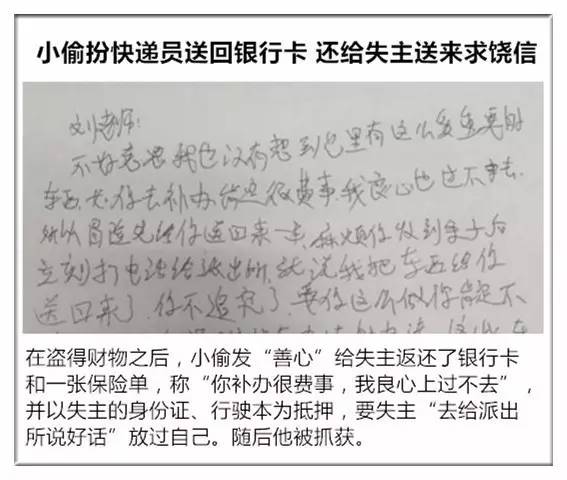 小偷扮快递员送回银行卡 还给失主送来求饶信
刘老师：
不好意思我也没有想到包里有这么多重要的
东西，如你去补办肯定很费事，我良心也过不去，
所以冒险先给你送回来一些，麻烦你收到东西后
立刻打电话给派出所，就说我把东西给你
送回来了，你不追究了，要你这么做你肯定不
在盗得财物之后，小偷发“善心”给失主返还了银行卡
和一张保险单，称“你补办很费事，我良心上过不去”，
并以失主的身份证、行驶本为抵押，要失主“去给派出
所说好话”放过自己。随后他被抓获。